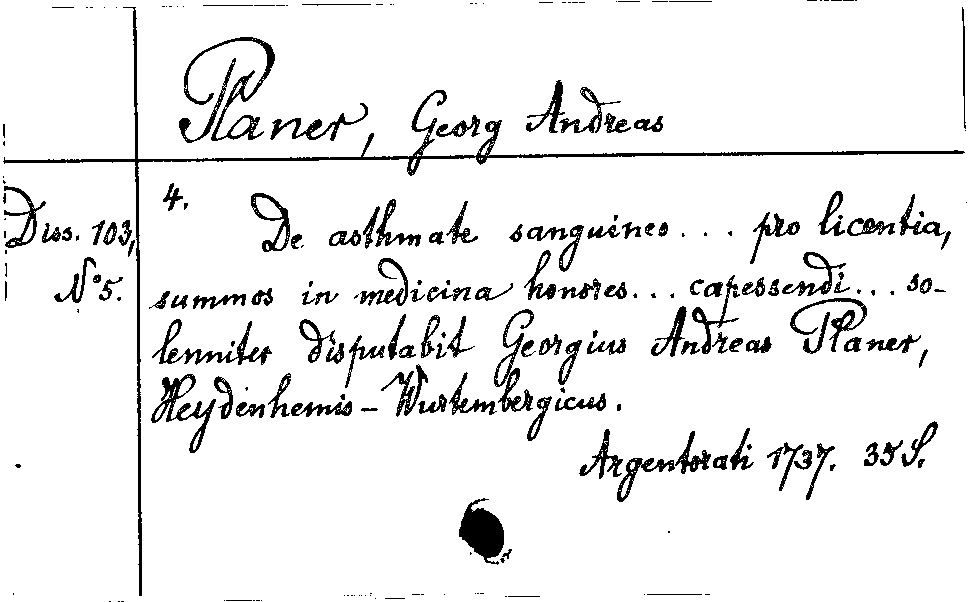 Planer, Georg Andreas
Diss. 103,
N° 5.
4.
De asthmate sanguineo . . . pro licentia,
summos in medicina honores . . . capessendi . . . so-
lenniter disputabit Georgius Andreas Planer,
Heydenhemis - Wurtembergicus.
Argentorati 1737. 35 S.